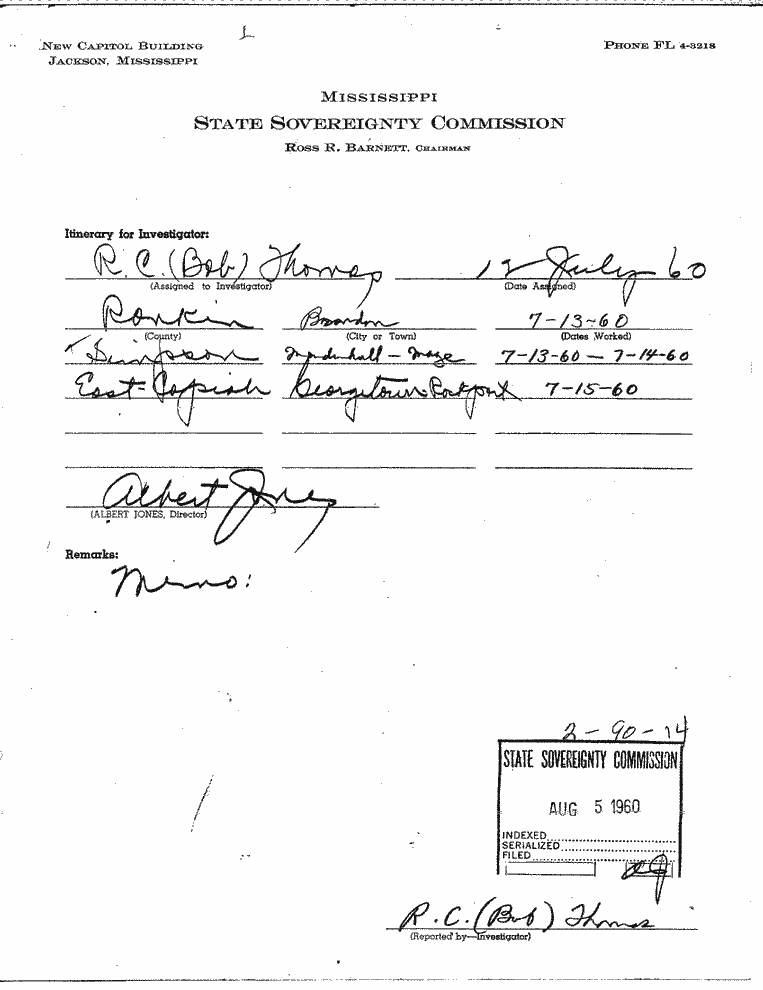 NEW CAPITOL BUILDING
JACKSON, MISSISSIPPI
PHONE FL 4-3218
MISSISSIPPI
STATE SOVEREIGNTY COMMISSION
ROSS R. BARNETT, CHAIRMAN
Itinerary for Investigator:
R.C. (Bob) Thomas 12 July 60
(Assigned to Investigator) (Date Assigned)
Rankin Brandon 7-13-60
(County) (City or Town) (Dates Worked)
Simpson Mendenhall - Magee 7-13-60 - 7-14-60
East-Copiah Georgetown-Rockport 7-15-60
Albert Jones
(ALBERT JONES, Director)
Remarks:
Memo:
2-90-14
STATE SOVEREIGNTY COMMISSION
AUG 5 1960
INDEXED
SERIALIZED
FILED
R.C. (Bob) Thomas
(Reported by—Investigator)